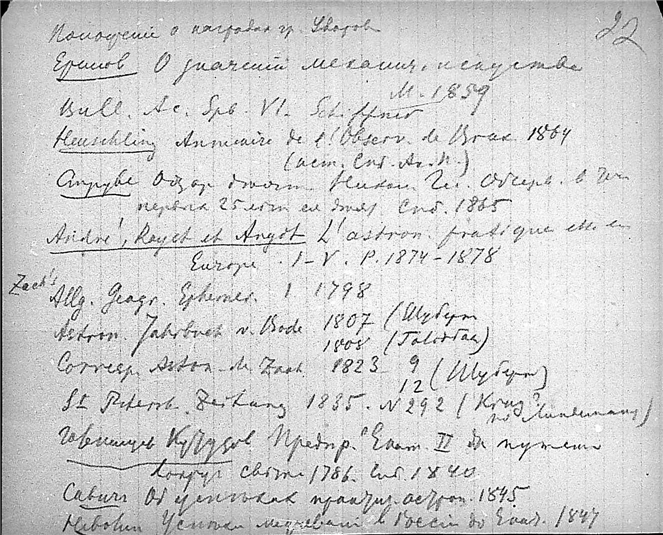 22
Положение о наградах гр. Уварова
Ершов О значении механич. искусства
М. 1859
Bull. Ac. Spb. VI. Schiffner
Heuschling Annuaire de l'Observ. de Brux 1864
(аст. Спб. Ак. Н.)
Струве Обзор деят. Никол. Гл. Обсерв. в теч.
первых 25 лет ея Спб. 1865
André, Rayet et Angot L'astron. pratique etc en
Europe. I–V. P. 1874–1878
Zach's
Allg. Geogr. Ephemer. I. 1798
Astron. Jahrbuch v. Bode 1807 (Шуберт
1808 (Голдбах)
Corresp. Astron. de Zach 1823 9
12 (Шуберт)
St Petersb. Zeitung 1835. N 292 (Krug?
по Lindemann)
Голенищев Кутузов Предпр. Екат. II для путеш
вокруг света 1786. Спб. 1840
Савич Об успехах практич. астрон. 1845
Неволин Успехи межевания в России до Екат. 1847